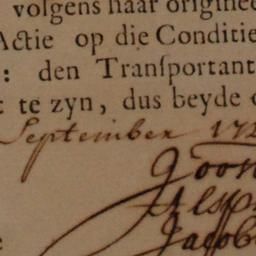 volgens haar originee
Actie op die Conditie
: den Tranſportant
t te zyn, dus beyde
September 172
Joon
Jacob